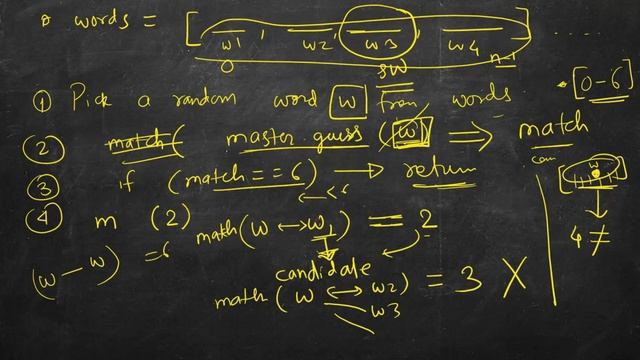 words = [ w1, w2, w3, w4 ] .....
0 sw n-1
① Pick a random word w from words [0-6]
② match( master.guess (w) ⇒ match
③ if (match == 6) → return
<6
w
④ m (2) math(w ↔ w1) = 2
4 ≠
(w - w) = 6
candidate
math (w ↔ w2) = 3 X
w3